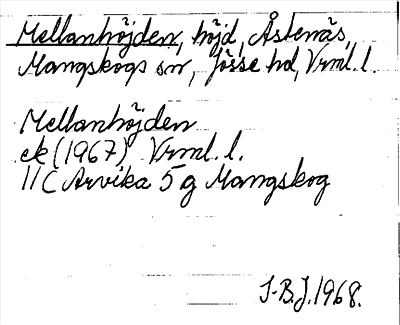 Mellanhöjden, höjd, Åstenäs,
Mangskogs sn, Jösse hd, Vrml. l.
Mellanhöjden
ek (1967) Vrml. l.
11C Arvika 5 g Mangskog
I-B.J. 1968.